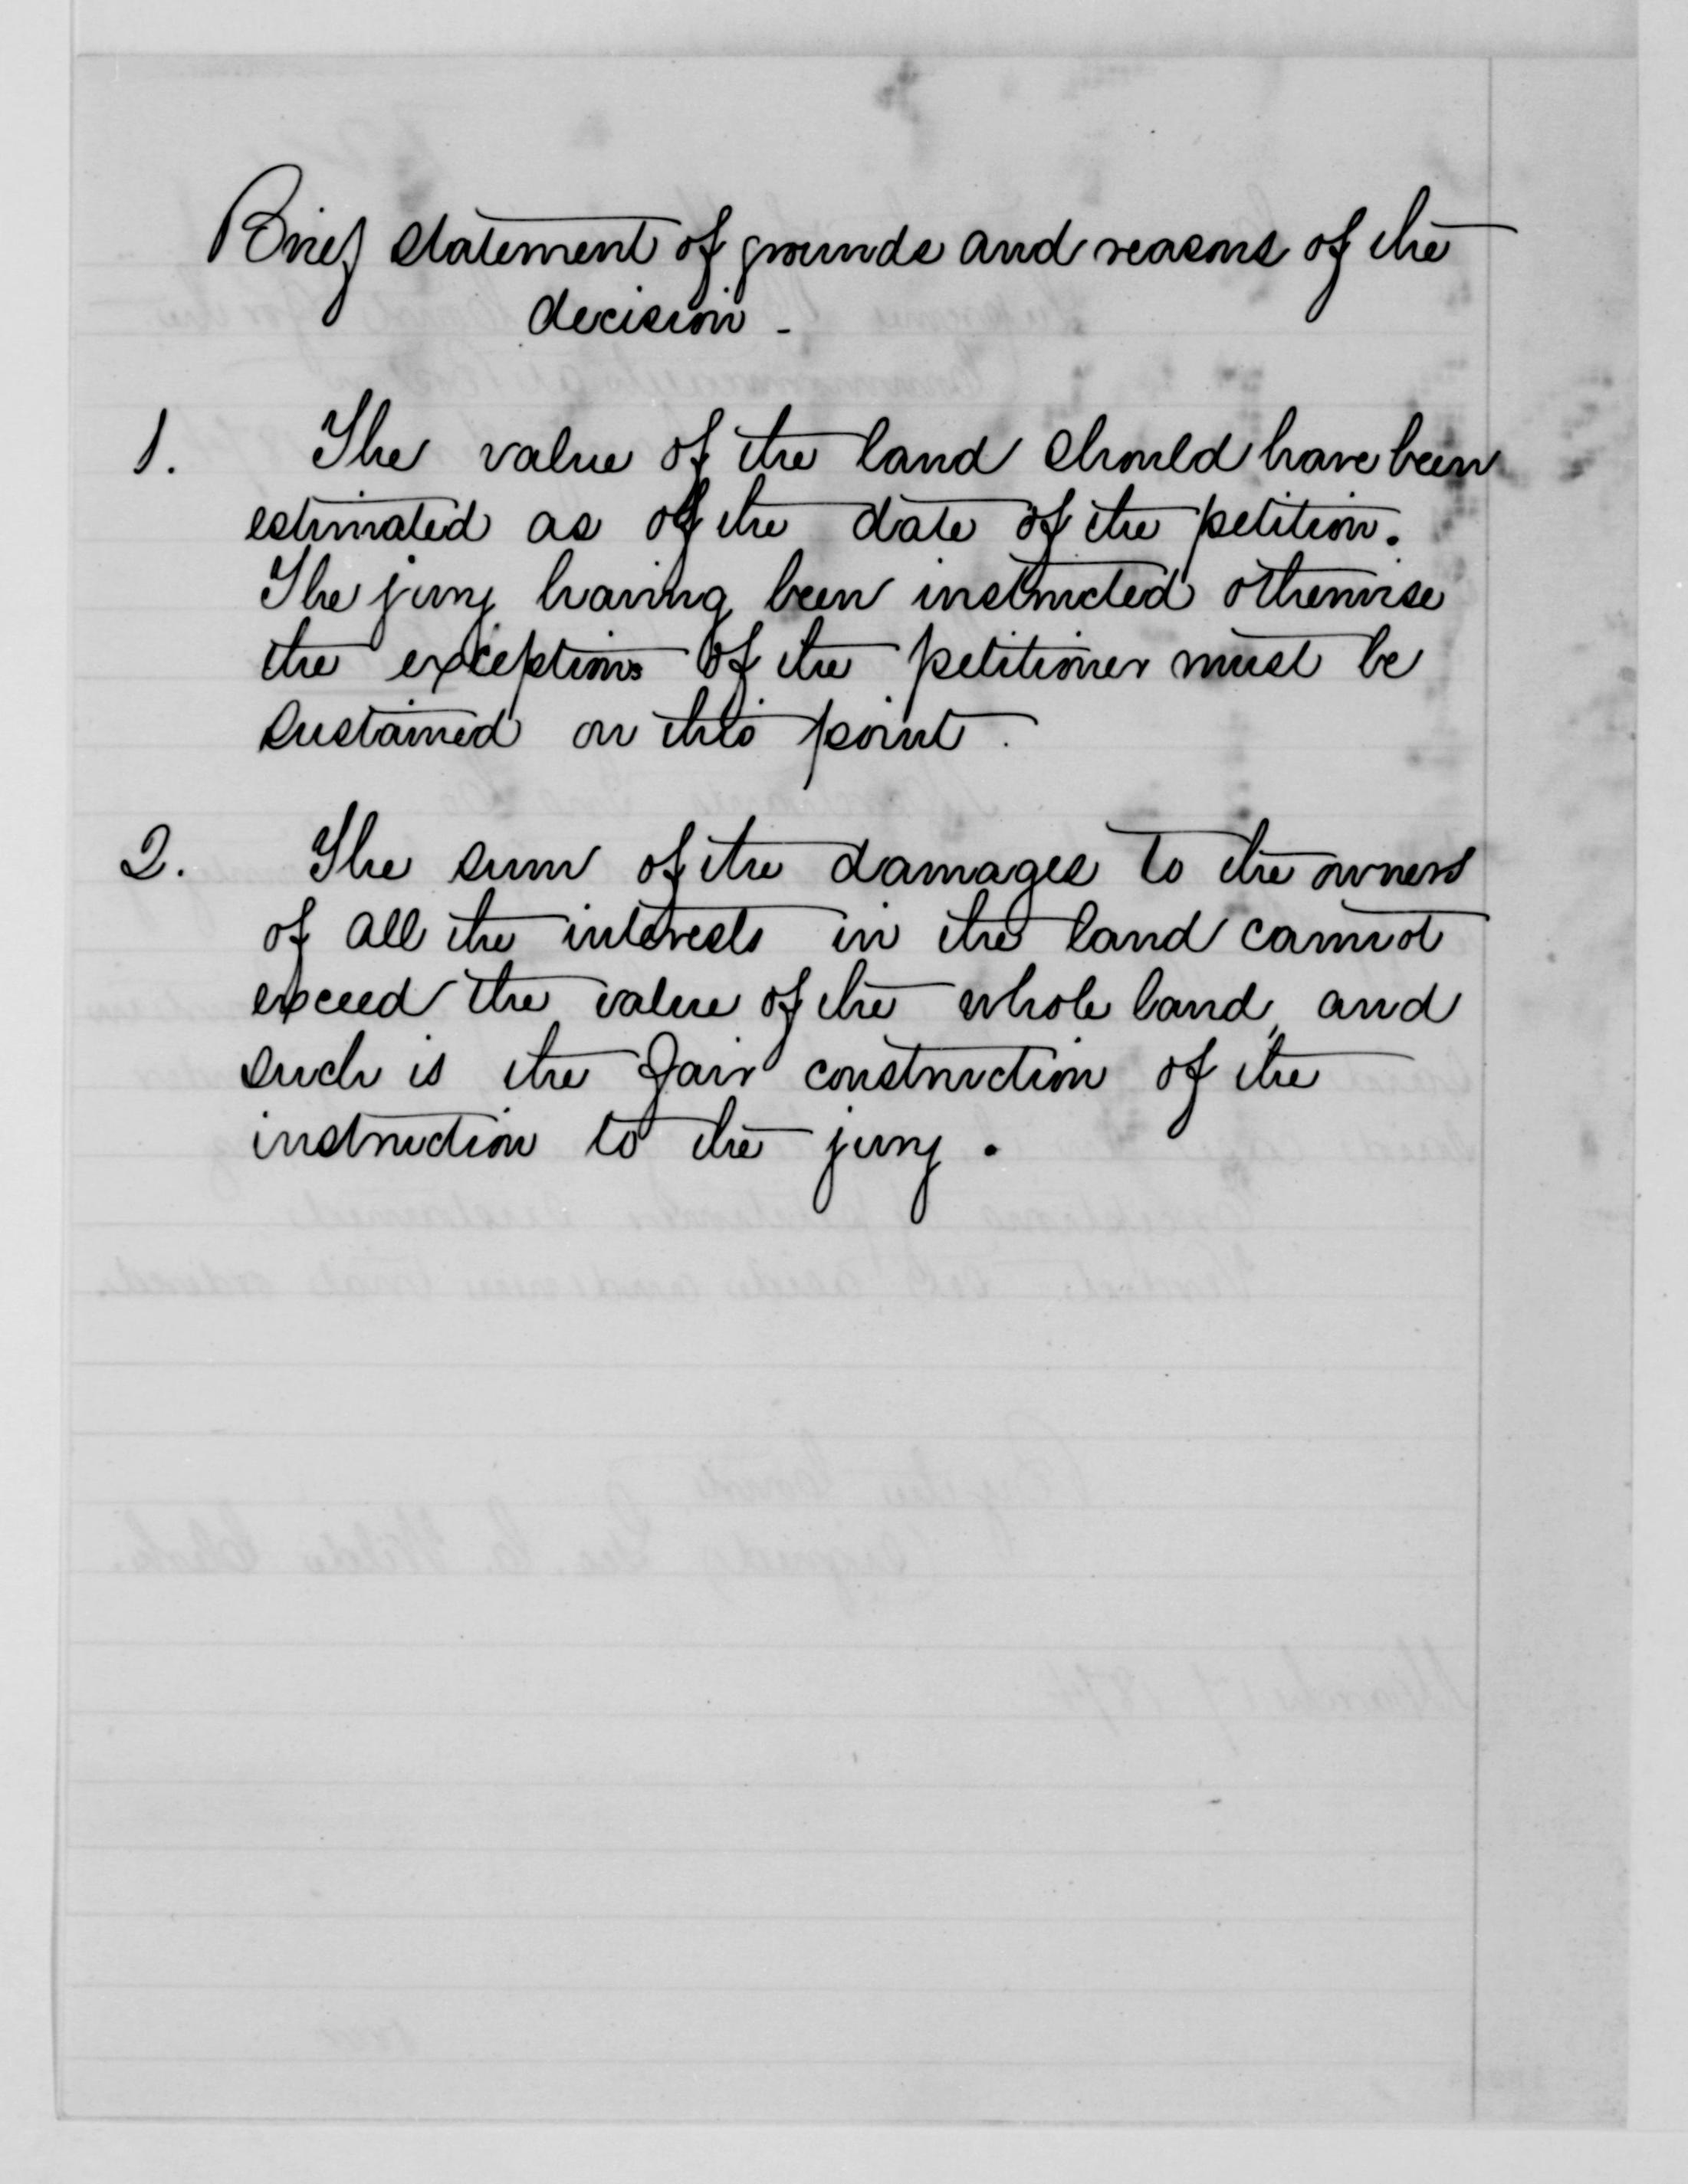 Brief statement of grounds and reasons of the
decision -
1. The value of the land should have been
estimated as of the date of the petition.
The jury having been instructed otherwise
the exceptions of the petitioner must be
sustained on this point.
2. The sum of the damages to the owners
of all the interests in the land cannot
exceed the value of the whole land, and
such is the fair construction of the
instruction to the jury.